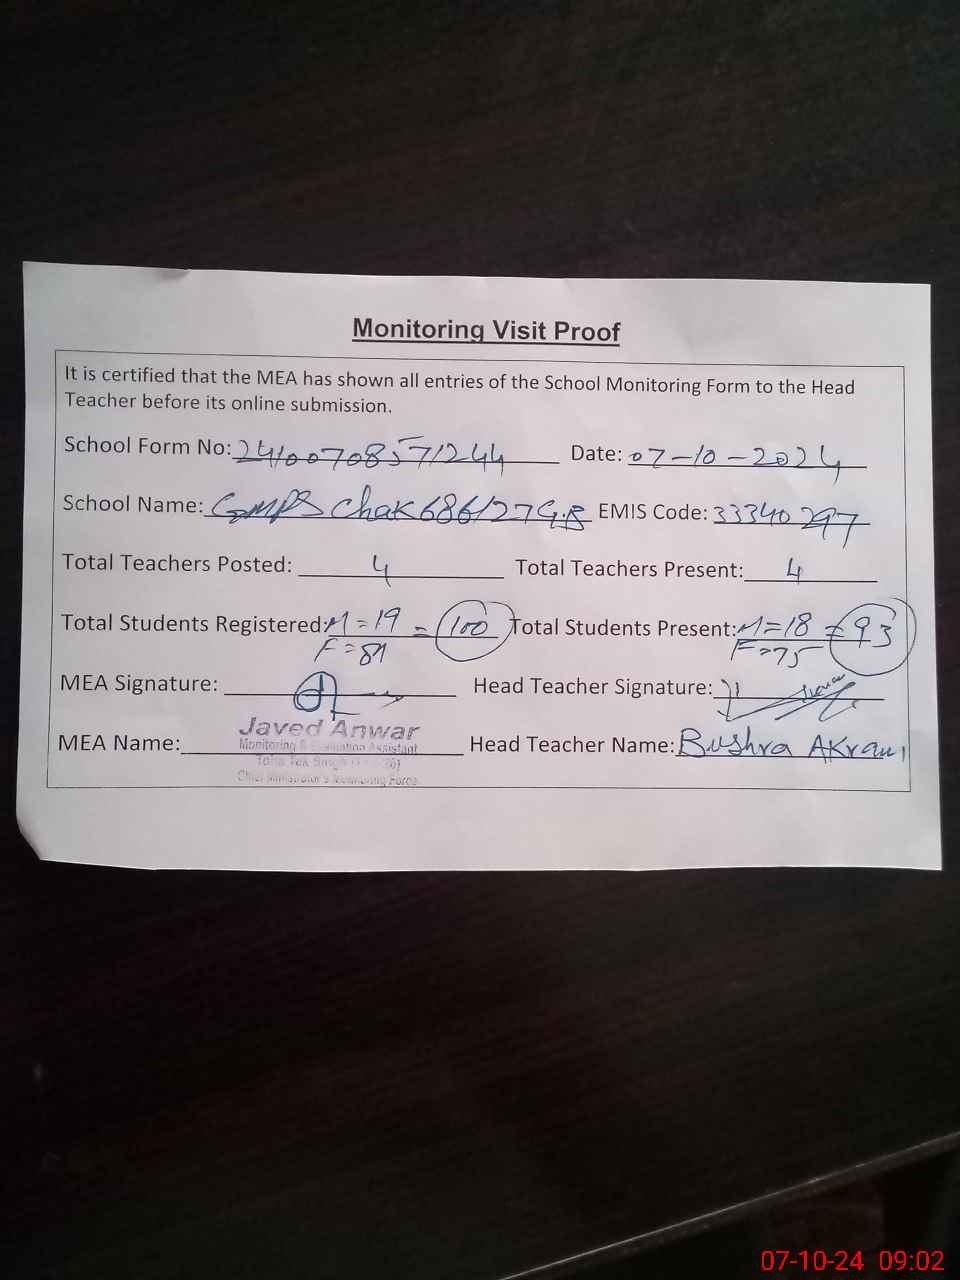 Monitoring Visit Proof
It is certified that the MEA has shown all entries of the School Monitoring Form to the Head
Teacher before its online submission.
School Form No: 24100708571244 Date: 07-10-2024
School Name: GMPS Chak 686/27 G.B EMIS Code: 33340297
Total Teachers Posted: 4 Total Teachers Present: 4
Total Students Registered: M=19 = 100 Total Students Present: M=18 = 93
F=81 F=75
MEA Signature: Head Teacher Signature:
Javed Anwar
MEA Name: Monitoring & Evaluation Assistant Head Teacher Name: Bushra Akram
Toba Tek Singh
Chief Minister's Monitoring Force
07-10-24 09:02